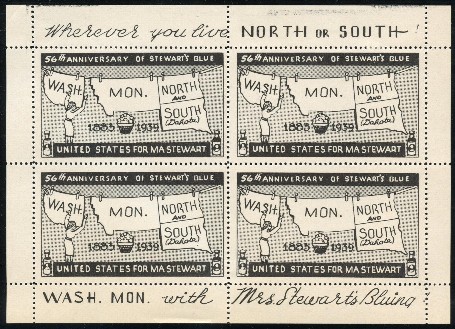 Wherever you live, NORTH OR SOUTH!
56th ANNIVERSARY OF STEWART'S BLUE
WASH. MON. NORTH AND SOUTH (Dakota)
1883 1939
UNITED STATES FOR MA STEWART
56th ANNIVERSARY OF STEWART'S BLUE
WASH. MON. NORTH AND SOUTH (Dakota)
1883 1939
UNITED STATES FOR MA STEWART
56th ANNIVERSARY OF STEWART'S BLUE
WASH. MON. NORTH AND SOUTH (Dakota)
1883 1939
UNITED STATES FOR MA STEWART
56th ANNIVERSARY OF STEWART'S BLUE
WASH. MON. NORTH AND SOUTH (Dakota)
1883 1939
UNITED STATES FOR MA STEWART
WASH. MON. with Mrs Stewart's Bluing!